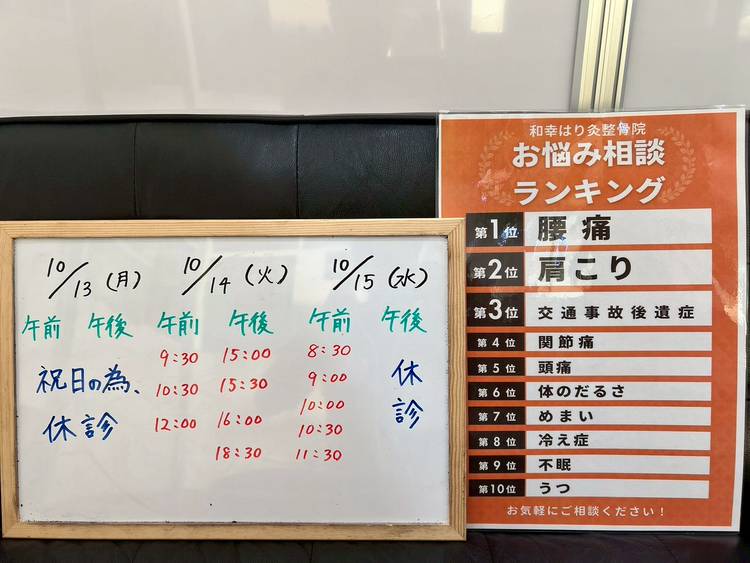 10/13(月) 10/14(火) 10/15(水)
午前 午後 午前 午後 午前 午後
祝日の為、
休診
9:30
10:30
12:00
15:00
15:30
16:00
18:30
8:30
9:00
10:00
10:30
11:30
休
診
和幸はり灸整骨院
お悩み相談
ランキング
第1位 腰痛
第2位 肩こり
第3位 交通事故後遺症
第4位 関節痛
第5位 頭痛
第6位 体のだるさ
第7位 めまい
第8位 冷え症
第9位 不眠
第10位 うつ
お気軽にご相談ください!